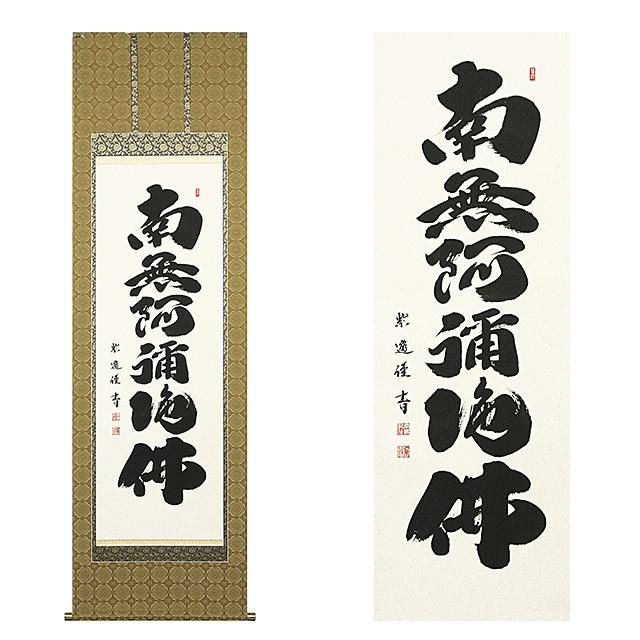 南無阿彌陀佛
紫逎径書
南無阿彌陀佛
紫逎径書